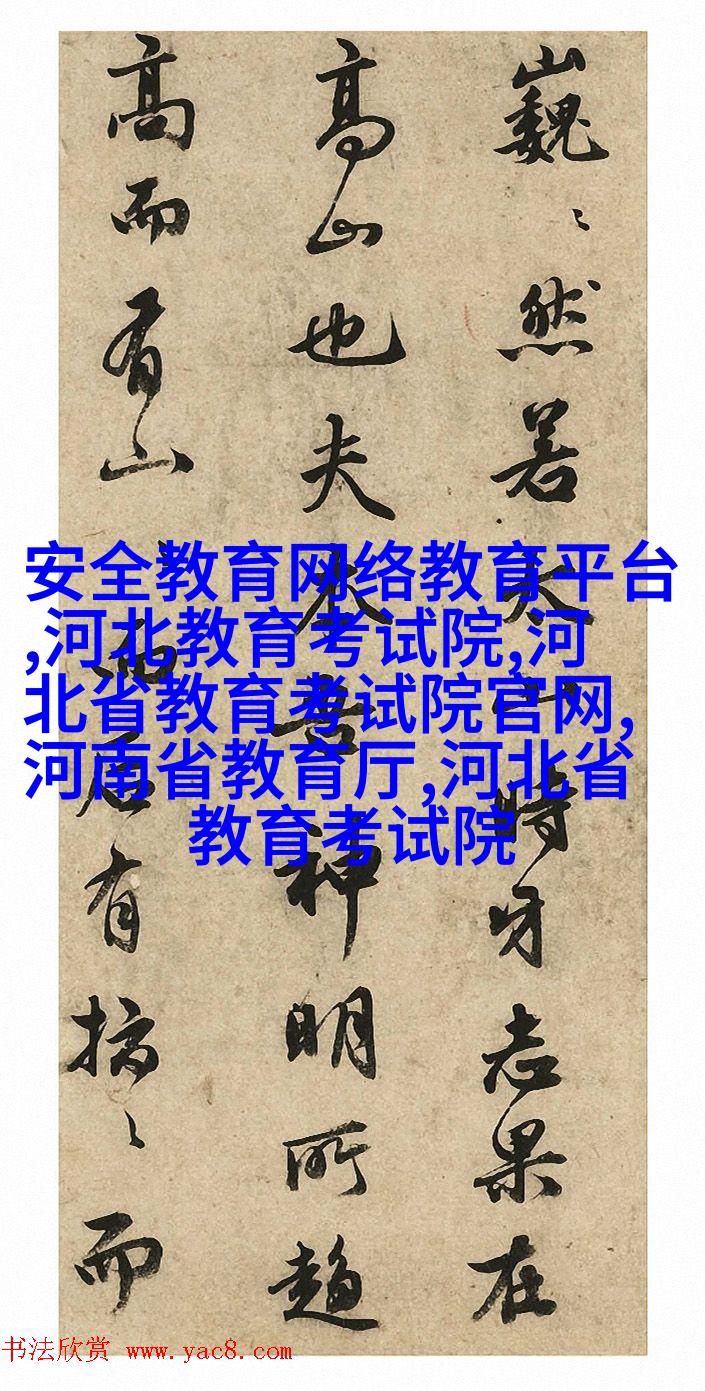 巍〻然若太山時牙志果在
高山也夫木音神明所趨
高而有山而石有〻而
安全教育网络教育平台
,河北教育考试院,河
北省教育考试院官网,
河南省教育厅,河北省
教育考试院
书法欣赏 www.yac8.com